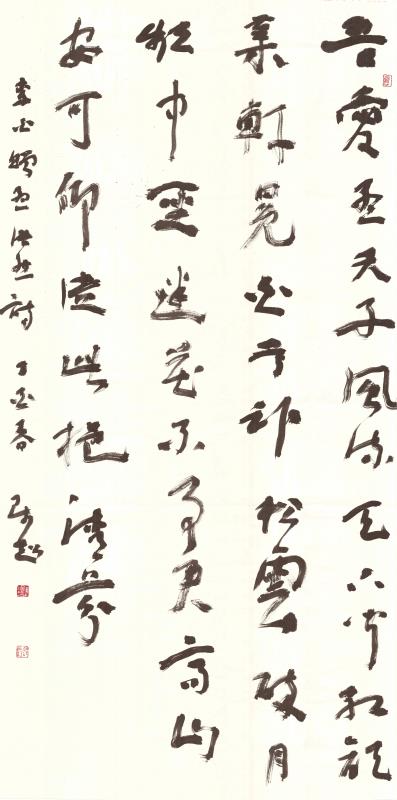 吾愛孟夫子風流天下聞紅顏
棄軒冕白首臥松雲醉月
頻中聖迷花不事君高山
安可仰徒此挹清芬
李白贈孟浩然詩 丁酉春